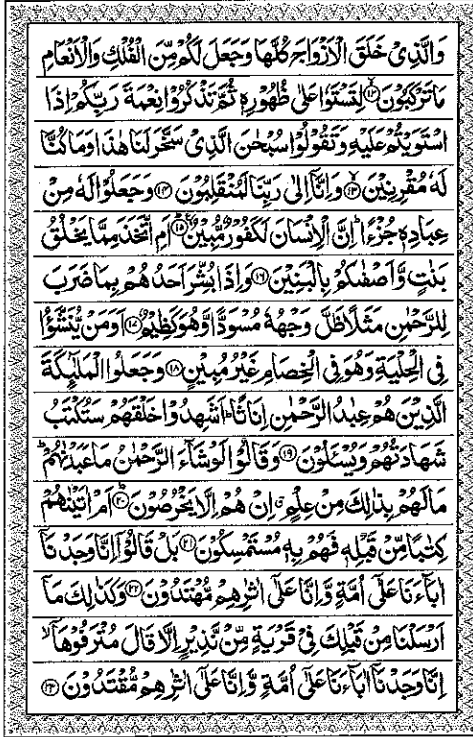 وَالَّذِىْ خَلَقَ الْاَزْوَاجَ كُلَّهَا وَجَعَلَ لَكُمْ مِّنَ الْفُلْكِ وَالْاَنْعَامِ
مَا تَرْكَبُوْنَ ۙ﴿۱۲﴾ لِتَسْتَوٗا عَلٰى ظُهُوْرِهٖ ثُمَّ تَذْكُرُوْا نِعْمَةَ رَبِّكُمْ اِذَا
اسْتَوَيْتُمْ عَلَيْهِ وَتَقُوْلُوْا سُبْحٰنَ الَّذِىْ سَخَّرَ لَنَا هٰذَا وَمَا كُنَّا
لَهٗ مُقْرِنِيْنَ ۙ﴿۱۳﴾ وَاِنَّاۤ اِلٰى رَبِّنَا لَمُنْقَلِبُوْنَ ﴿۱۴﴾ وَجَعَلُوْا لَهٗ مِنْ
عِبَادِهٖ جُزْءًا ؕ اِنَّ الْاِنْسَانَ لَكَفُوْرٌ مُّبِيْنٌ ؕ﴿۱۵﴾ اَمِ اتَّخَذَ مِمَّا يَخْلُقُ
بَنٰتٍ وَّاَصْفٰٮكُمْ بِالْبَنِيْنَ ﴿۱۶﴾ وَاِذَا بُشِّرَ اَحَدُهُمْ بِمَا ضَرَبَ
لِلرَّحْمٰنِ مَثَلًا ظَلَّ وَجْهُهٗ مُسْوَدًّا وَّهُوَ كَظِيْمٌ ﴿۱۷﴾ اَوَمَنْ يُّنَشَّؤُا
فِى الْحِلْيَةِ وَهُوَ فِى الْخِصَامِ غَيْرُ مُبِيْنٍ ﴿۱۸﴾ وَجَعَلُوا الْمَلٰٓئِكَةَ
الَّذِيْنَ هُمْ عِبٰدُ الرَّحْمٰنِ اِنَاثًا ؕ اَشَهِدُوْا خَلْقَهُمْ ؕ سَتُكْتَبُ
شَهَادَتُهُمْ وَيُسْئَلُوْنَ ﴿۱۹﴾ وَقَالُوْا لَوْ شَآءَ الرَّحْمٰنُ مَا عَبَدْنٰهُمْ ؕ
مَا لَهُمْ بِذٰلِكَ مِنْ عِلْمٍ ۗ اِنْ هُمْ اِلَّا يَخْرُصُوْنَ ؕ﴿۲۰﴾ اَمْ اٰتَيْنٰهُمْ
كِتٰبًا مِّنْ قَبْلِهٖ فَهُمْ بِهٖ مُسْتَمْسِكُوْنَ ﴿۲۱﴾ بَلْ قَالُوْۤا اِنَّا وَجَدْنَاۤ
اٰبَآءَنَا عَلٰٓى اُمَّةٍ وَّاِنَّا عَلٰٓى اٰثٰرِهِمْ مُّهْتَدُوْنَ ﴿۲۲﴾ وَكَذٰلِكَ مَاۤ
اَرْسَلْنَا مِنْ قَبْلِكَ فِىْ قَرْيَةٍ مِّنْ نَّذِيْرٍ اِلَّا قَالَ مُتْرَفُوْهَاۤ ۙ
اِنَّا وَجَدْنَاۤ اٰبَآءَنَا عَلٰٓى اُمَّةٍ وَّاِنَّا عَلٰٓى اٰثٰرِهِمْ مُّقْتَدُوْنَ ﴿۲۳﴾